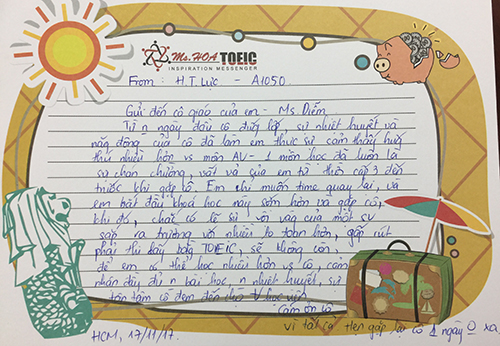 Ms. HOA TOEIC
INSPIRATION MESSENGER
From : H.T. Lực - A1050
Gửi đến cô giáo của em - Ms Diễm
Từ n ngày đầu cô đứng lớp, sự nhiệt huyết và
năng động của cô đã làm em thực sự cảm thấy hứng
thú nhiều hơn vs môn AV - 1 môn học đã luôn là
sự chán chường, vất vả của em từ thời cấp 3 đến
trước khi gặp cô. Em chỉ muốn time quay lại, và
em bắt đầu khoá học này sớm hơn và gặp cô,
khi đó, chắc có lẽ sự vội vàng của một sv
sắp ra trường với nhiều lo toan hơn, gấp rút
phải thi lấy bằng TOEIC sẽ không còn
để em có thể học nhiều hơn vs cô, cảm
nhận đầy đủ n bài học, n nhiệt huyết, sự
tận tâm cô đem đến học viên.
Cảm ơn cô
vì tất cả, hẹn gặp lại cô 1 ngày 0 xa.
HCM, 17/11/17.